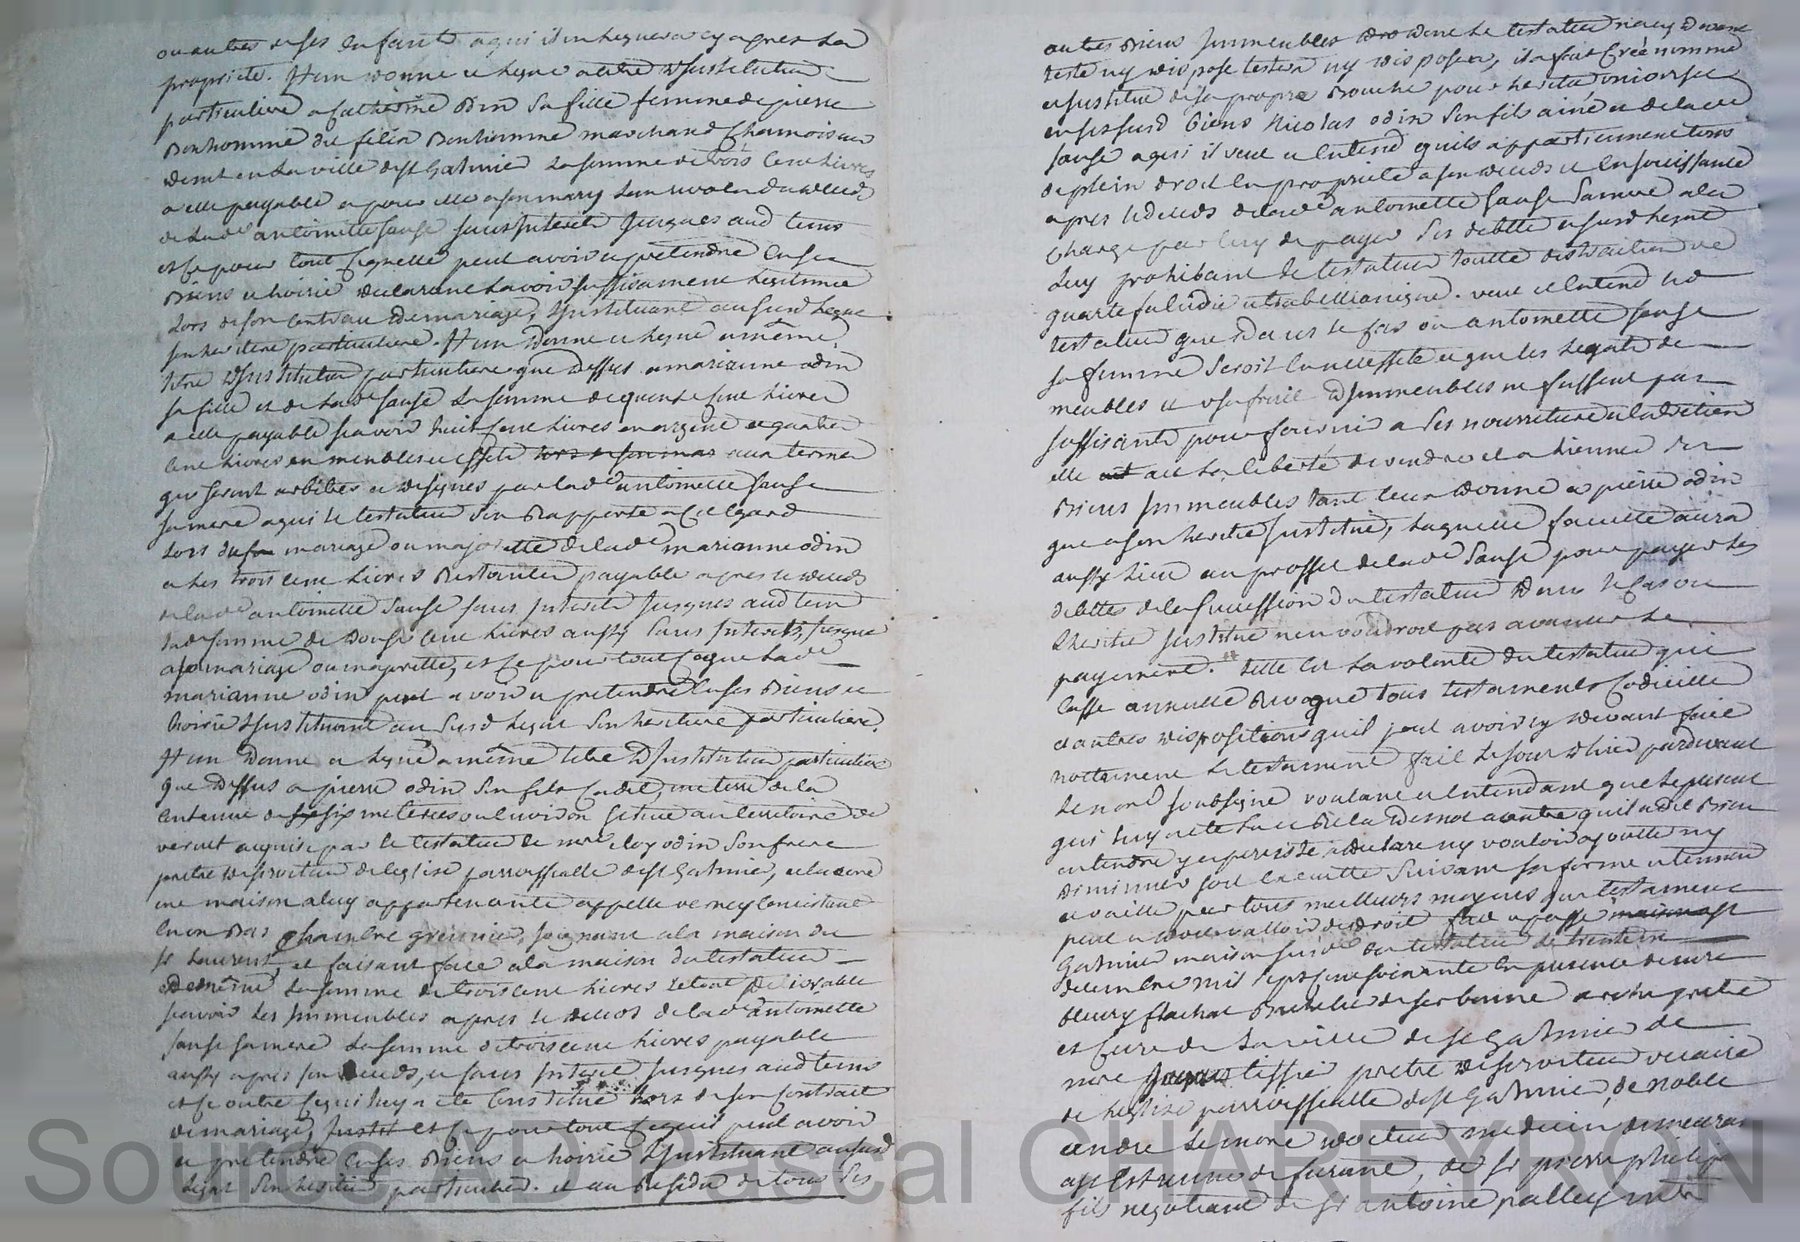 ou autres de ses enfants a qui il en leguera cy apres la
propriete. Item donne et legue a titre d'Institution
particuliere a Catherine odin sa fille femme de pierre
Bonhomme du felix Bonhomme marchand Chamoiseur
demt en la ville de st Galmier la somme de trois cent livres
a elle payable et pour elle a son mary lan revolu du decede
de lade antoinette sause sans Interets Jusques aud tems
et ce pour tout ce quelle peut avoir et pretendre en ses
Biens et hoirie declarant lavoir suffisament legitimee
Lors de son Contrat de mariage, Instituant au susd legue
son heritiere particuliere. Item donne et legue a meme
titre d'Institution particuliere que dessus a marianne odin
sa fille et de lade sause la somme de quinze cent livres
a elle payable scavoir huit cent livres en argent et quatre
Cent livres en meubles et effets aux termes
qui seront arbitres et designes par lade antoinette sause
sa mere a qui le testateur s'en Rapporte a Cet Egard
Lors du mariage ou majorette de lade marianne odin
et les trois cent livres Restantes payable apres le deceds
de lade antoinette sause sans Interets Jusques aud tem
lade somme de Douse cent livres aussy sans Interets, Jusque
a so mariage ou majorette, et ce pour tout Ce que lade
marianne odin peut avoir et pretendre en ses Biens et
hoirie Instituant au susd legat son heritiere particuliere.
Item Donne et legue a même titre D'Institution particuliere
que Dessus a pierre odin son fils Cadet une terre de la
Contenue de six meterees ou Environ Scitue au territoire de
vernet acquise par le testateur de mre eloy odin son frere
pretre desserviteur de leglise parroissialle de st Galmier, et encore
une maison a luy appartenante appellé verney Consistant
en un Bas Chambre grenier, Joignant a la maison du
sr Laurent, et faisant face a la maison du testateur
Et de même la somme de trois cent livres le tout Delivrable
scavoir les Immeubles apres le deceds de lade antoinette
sause sa mere La somme de trois cent livres payable
aussy apres son deceds, et sans Interet Jusques aud tems
et ce outre ce qui luy a ete Constitué Lors de son Contrait
de mariage, et ce pour tout ce quil peut avoir
et pretendre en ses Biens et hoirie L'Instituant au susd
legat son heritier particulier. et au Residu de tous ses
autres Biens Immeubles dont le testateur na cy Devant
testé ny disposé testera ny disposera, il a fait Créé nommé
et Institué de sa propre Bouche pour heritier universel
en ses susd biens Nicolas odin son fils ainé et de lade
sause a qui il veut et Entend quils appartiennent tous
de plein droit en proprieté a son deceds et en Jouissance
apres le deceds de lade antoinette sause sa mere a la
Charge par luy de payer ses debtte et susd legat
Luy prohibant le testateur toutte distraction de
quarte falcidie et trabellianique. veut et Entend led
testateur que dans le Cas ou antoinette sause
sa femme seroit En necessité et que les legats de
meubles et usufruit d'Immeubles ne fussent pas
suffisants pour fournir a ses nourriture et Entretien
elle ait la liberté de vendre et aliener ses
Biens Immeubles tant ceux donné a pierre odin
que a son heritier Institué, laquelle faculté aura
aussy lieu au proffit de lade Sause pour payer les
debttes de la succession du testateur Dans le Cas ou
L'heritier Institué n'en voudroit pas avancer le
payement. telle Est la volonté du testateur qui
Casse annulle Revoque tous testaments Codicilles
et autres dispositions quil peut avoir cy devant faits
nottament le testament fait le Jour d'hier pardevant
le nore soubsigné voulant et Entendant que le present
qui luy a ete lu et Relu De mot a autre quil a dit Bien
entendre y a persisté et declare ny vouloir ajoutter ny
diminuer soit Executté suivant sa forme et teneur
et vaille par tous meilleurs moyens que testament
peut et doit valloir de droit fait et passé
Galmier maison susde du testateur le trentieme
decembre mil sept cent soixante En presence de mre
fleury flachat Bachelier de sorbonne archiprebtre
et Curé de la ville de st Galmier de
mre tissier pretre desserviteur vicaire
de leglise parroissialle de st Galmier, de noble
andre Lemore docteur medecin demeurant
a st Estienne de furant, de sr pierre philip
fils negotiant de sr antoine palley
Source AD Pascal CHAREYRON